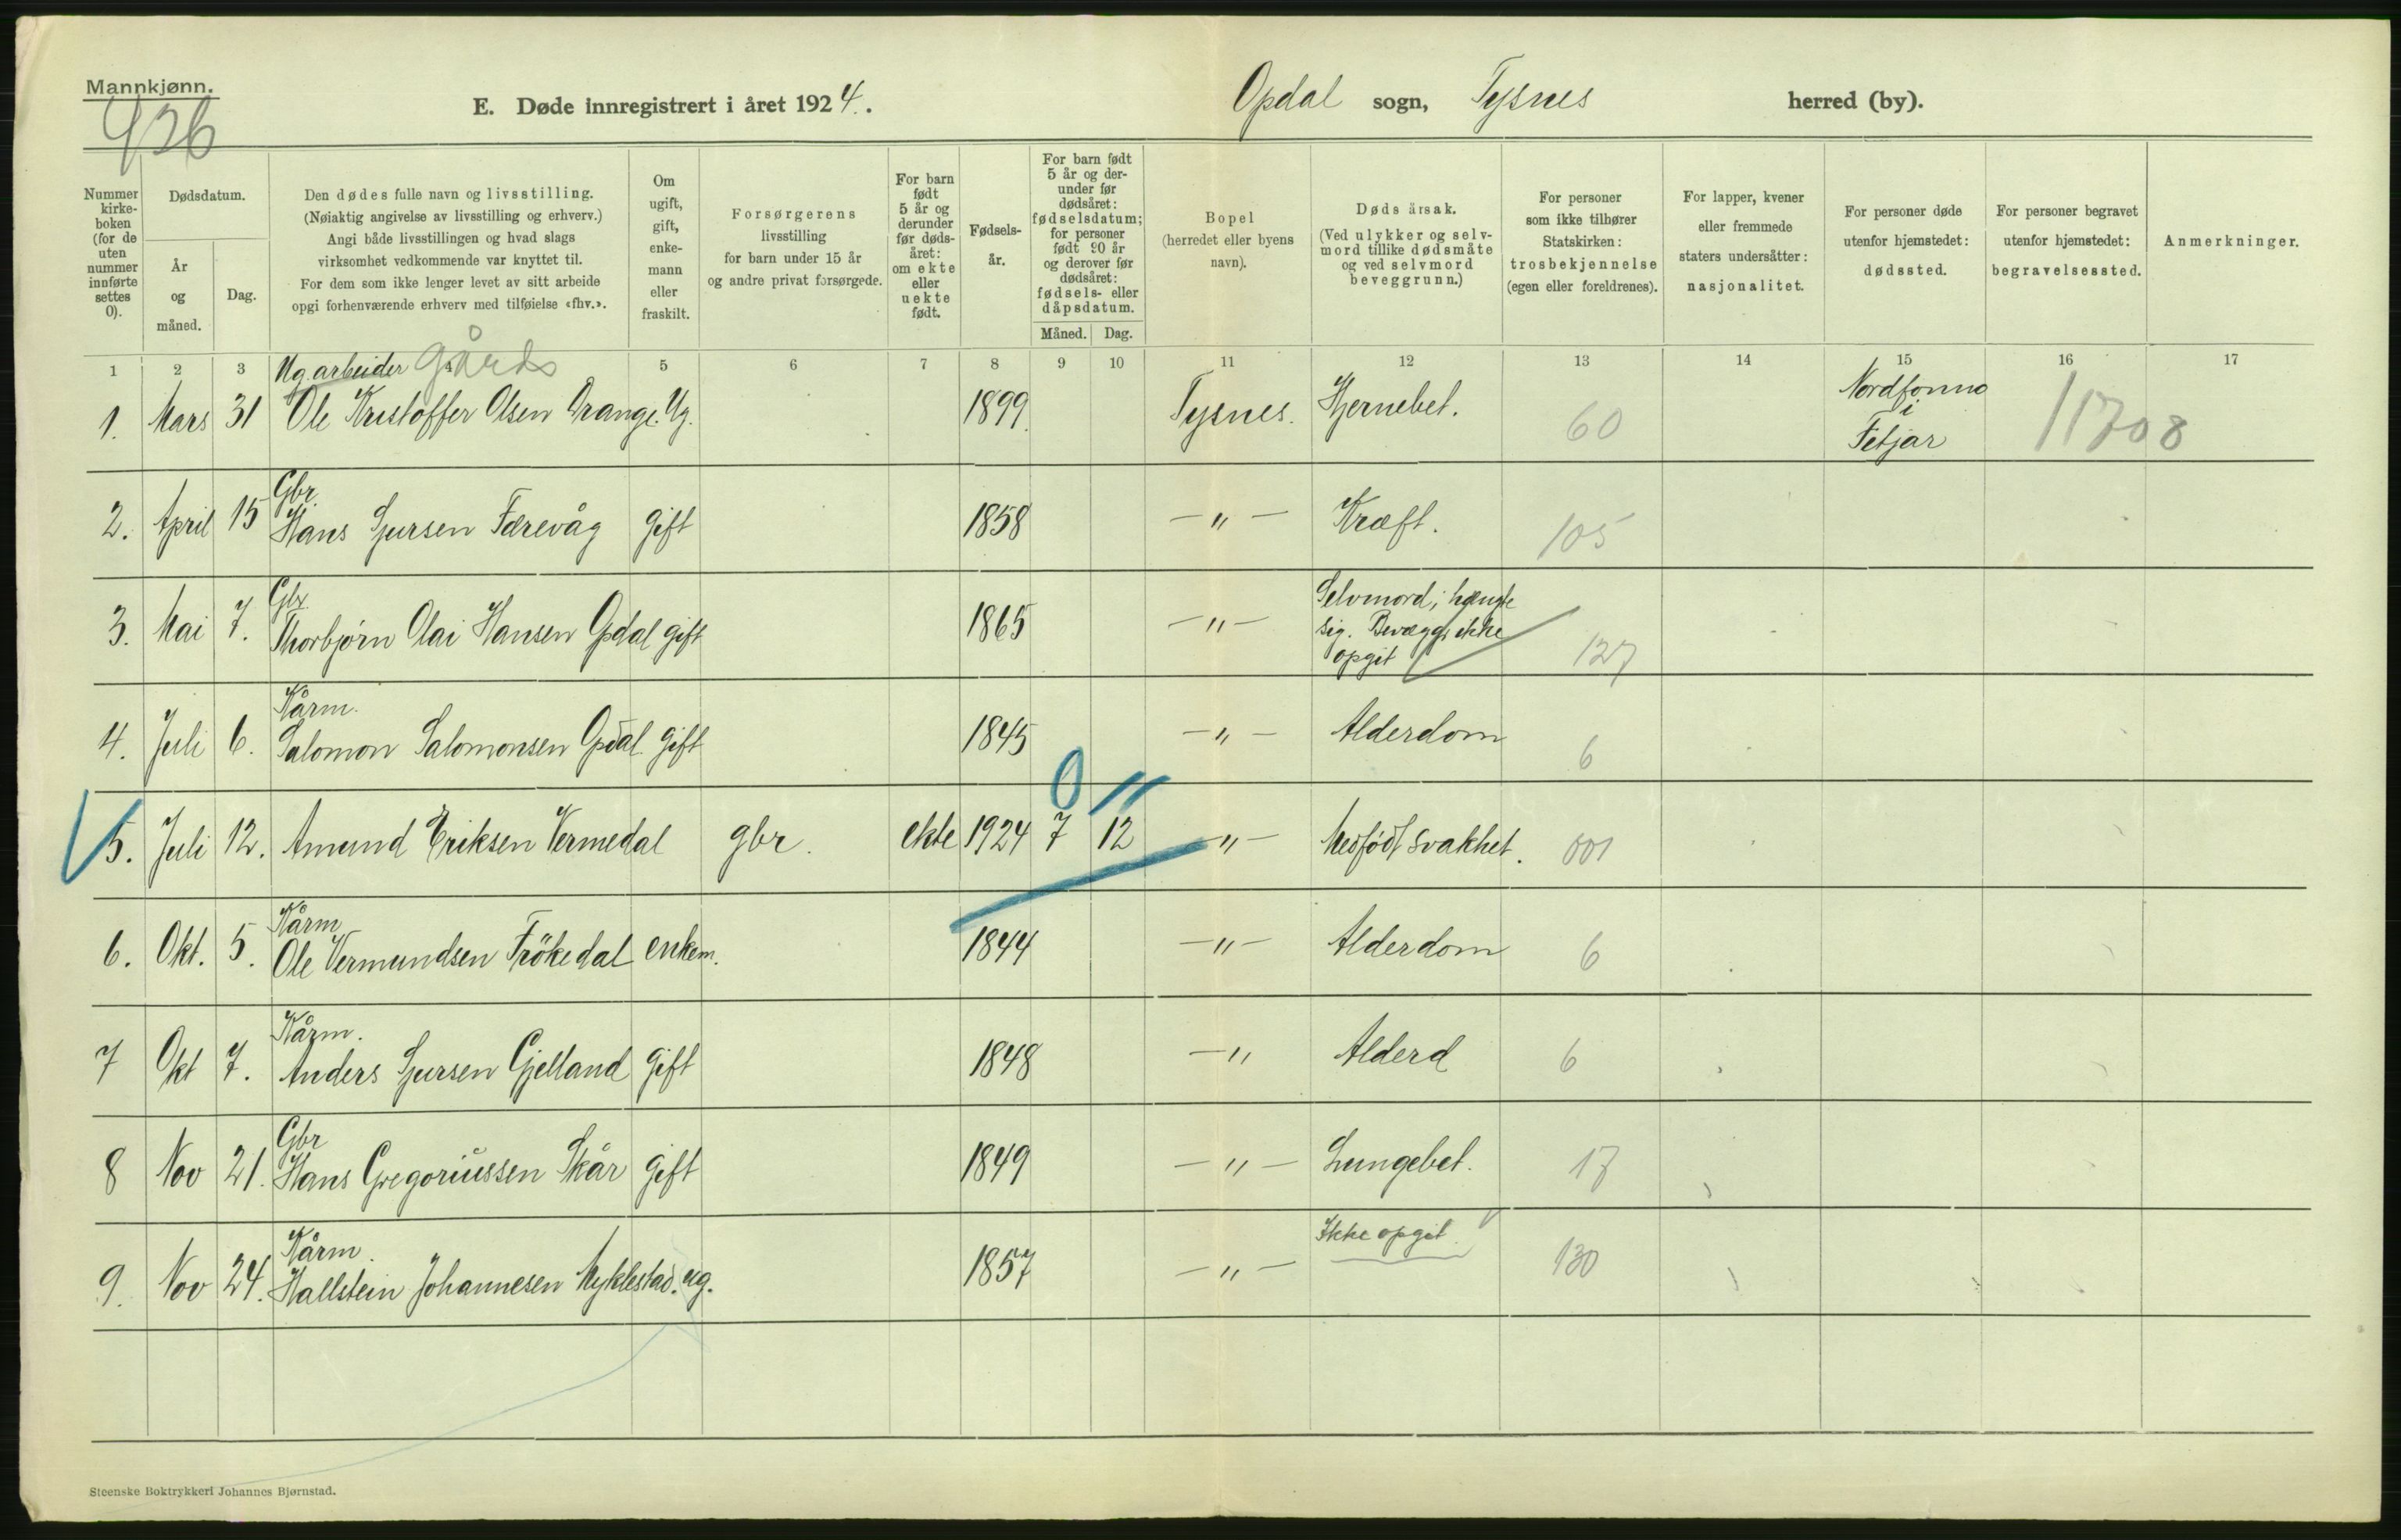 Mannkjønn.
926
E. Døde innregistrert i året 1924.
Opdal sogn, Tysnes herred (by).
Nummer kirke-boken (for de uten nummer innførte settes 0).
Dødsdatum.
År og måned.
Dag.
Den dødes fulle navn og livsstilling.
(Nøiaktig angivelse av livsstilling og erhverv.)
Angi både livsstillingen og hvad slags
virksomhet vedkommende var knyttet til.
For dem som ikke lenger levet av sitt arbeide
opgi forhenværende erhverv med tilføielse «fhv.».
Om ugift, gift, enke-mann eller fraskilt.
Forsørgerens
livsstilling
for barn under 15 år
og andre privat forsørgede.
For barn født 5 år og derunder før døds-året: om ekte eller uekte født.
Fødsels-år.
For barn født 5 år og der-under før dødsåret: fødselsdatum; for personer født 90 år og derover før dødsåret: fødsels- eller dåpsdatum.
Måned. Dag.
Bopel
(herredet eller byens
navn).
Døds årsak.
(Ved ulykker og selv-
mord tillike dødsmåte
og ved selvmord
beveggrunn.)
For personer
som ikke tilhører
Statskirken:
trosbekjennelse
(egen eller foreldrenes).
For lapper, kvener
eller fremmede
staters undersåtter:
nasjonalitet.
For personer døde
utenfor hjemstedet:
dødssted.
For personer begravet
utenfor hjemstedet:
begravelsessted.
Anmerkninger.
1 2 3 5 6 7 8 9 10 11 12 13 14 15 16 17
Ug. arbeider Gårds
1. Mars 31 Ole Kristoffer Olsen Drange. Ug. 1899. Tysnes. Hjernebet. 60 Nordfonno i Fitjar 11708
Gbr.
2. April 15 Hans Sjursen Færevåg gift 1858 -"- Kræft. 105
Gbr
3. Mai 7. Thorbjørn Olai Hansen Opdal gift 1865 -"- Selvmord; hængte sig. Bevæggr. ikke opgit 127
Kårm.
4. Juli 6. Salomon Salomonsen Opdal gift 1845 -"- Alderdom 6
0 11
5. Juli 12. Amund Eriksen Vermedal gbr. ekte 1924 7 12 -"- Medfødt svakhet. 001
Kårm
6. Okt. 5. Ole Vermundsen Frökedal enkem. 1844 -"- Alderdom 6
Kårm.
7 Okt 7. Anders Sjursen Gjelland gift 1848 -" Alderd 6
Gbr
8 Nov 21. Hans Gregoriussen Skår gift 1849 -"- Lungebet. 17
Kårm.
9. Nov 24. Hallstein Johannesen Myklestad. ug. 1857 -"- Ikke opgit. 130
Steenske Boktrykkeri Johannes Bjørnstad.